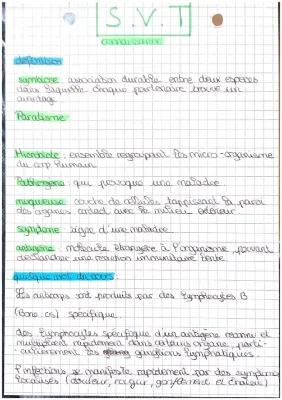 S.V.T
définition
symbiose : association durable entre deux espèces
dans laquelle chaque partenaire trouve un
avantage
Paralisme
Microbiote : ensemble regroupant les micro-organisme
du corp humain
Pathogène : qui provoque une maladie.
muqueuse : couche de cellules tappissant la paroi
des organes contact avec le milieu extérieur
symptome : signe d'une maladie.
antigène : molécule étrangère à l'organisme, pouvant
déclancher une réaction immunitaire
quelque mot du cours :
Les anticorps sont produits par des lymphocytes B
(Bone, os) spécifique.
des lymphocytes spécifique d'un antigène reconnu et
multiplient rapidement dans certains organe, parti-
culièrement les ganglions lymphatiques.
l'infections se manifeste rapidement par des symptome
localisés (douleur, rougeur, gonflement et chaleur)